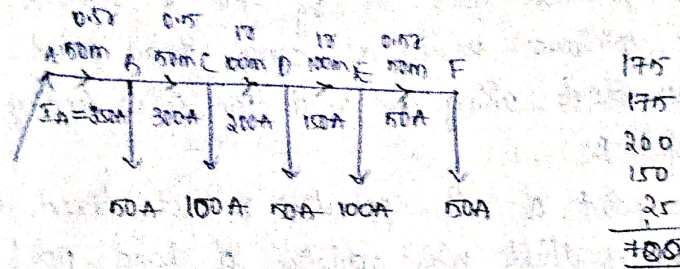 0.5r 0.5r 1r 1r 0.5r
A 50m B 50m C 100m D 100m E 50m F
I_A=350A 300A 200A 150A 50A
50A 100A 50A 100A 50A
175
175
200
150
25